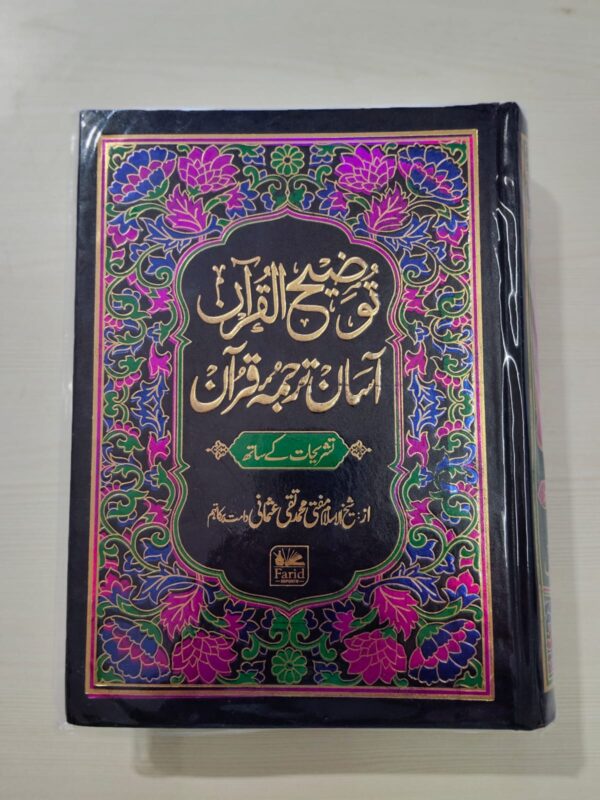 توضیح القرآن
آسان ترجمۂ قرآن
تشریحات کے ساتھ
از: شیخ الاسلام مفتی محمد تقی عثمانی دامت برکاتہم
Farid